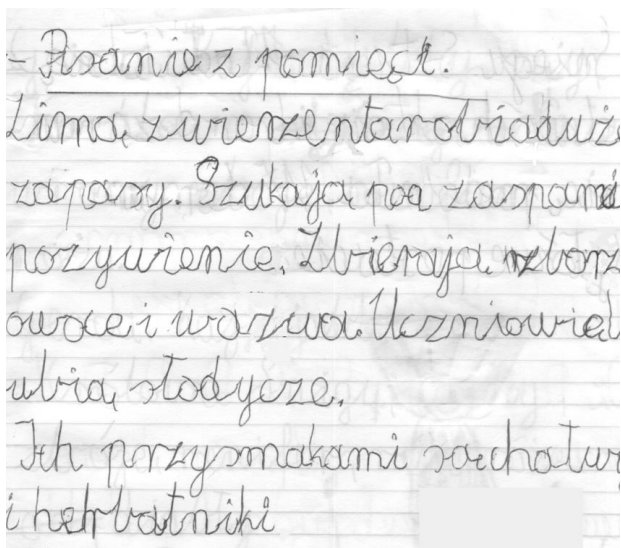 - Pisanie z pomięci.
Zimą zwierzenta robią duże
zapasy. Szukają pod zaspami
pozywienie. Zbierają zborz
owoce i warzwa. Uczniowie l
ubią słodycze.
Ich przysmakami są chałwy
i herbatniki